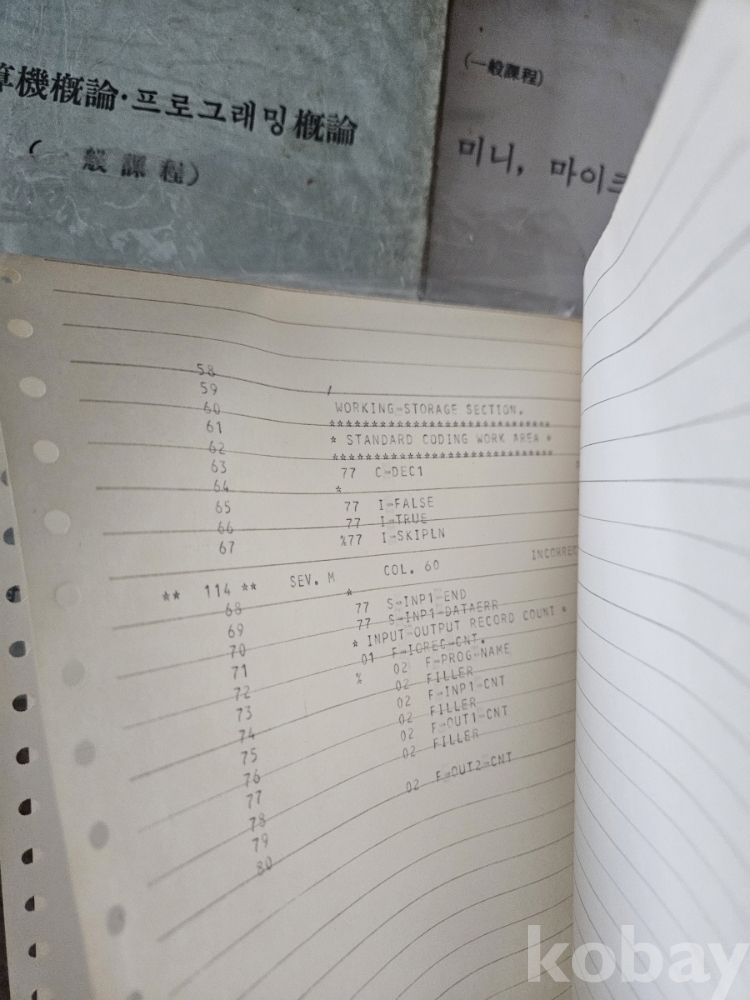 算機概論·프로그래밍概論
(一般課程)
(一般課程)
미니, 마이크
58
59 /
60 WORKING-STORAGE SECTION.
61 ****************************
62 * STANDARD CODING WORK AREA *
63 ****************************
64 77 C-DEC1
65 *
66 77 I-FALSE
67 77 I-TRUE
%77 I-SKIPLN
** 114 ** SEV. M COL. 60 INCORRE
68 *
69 77 S-INP1-END
70 77 S-INP1-DATAERR
71 * INPUT-OUTPUT RECORD COUNT *
72 01 F-IOREC-CNT.
73 % 02 F-PROG-NAME
74 02 FILLER
75 02 F-INP1-CNT
76 02 FILLER
77 02 F-OUT1-CNT
78 02 FILLER
79
80 02 F-OUT2-CNT
kobay